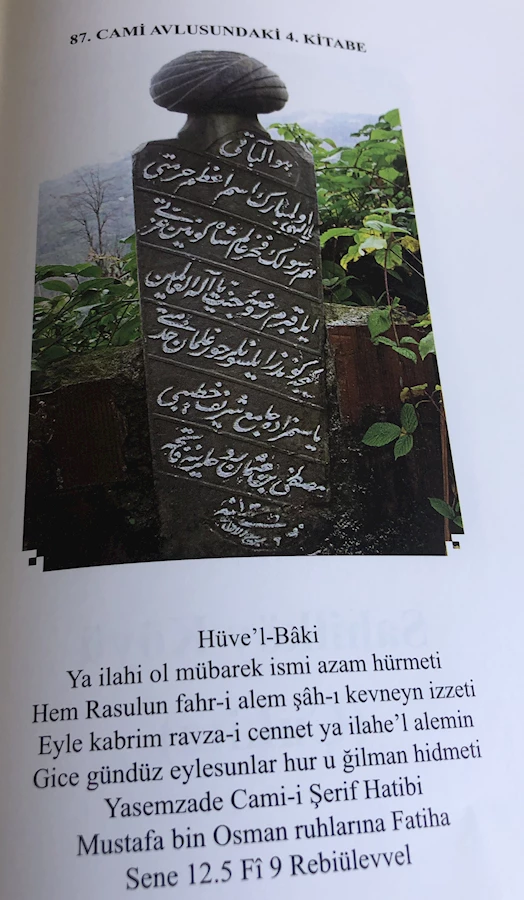 87. CAMİ AVLUSUNDAKİ 4. KİTABE
هو الباقی
یا الهی اول مبارک اسم اعظم حرمتی
هم رسولک فخر عالم شاه کونین عزتی
ایله قبرم روضه جنت یا اله العالمین
کیجه کوندز ایلسونلر حور غلمان خدمتی
یاسمزاده جامع شریف خطیبی
مصطفی بن عثمان
Hüve'l-Bâki
Ya ilahi ol mübarek ismi azam hürmeti
Hem Rasulun fahr-i alem şâh-ı kevneyn izzeti
Eyle kabrim ravza-i cennet ya ilahe'l alemin
Gice gündüz eylesunlar hur u ğilman hidmeti
Yasemzade Cami-i Şerif Hatibi
Mustafa bin Osman ruhlarına Fatiha
Sene 12.5 Fî 9 Rebiülevvel